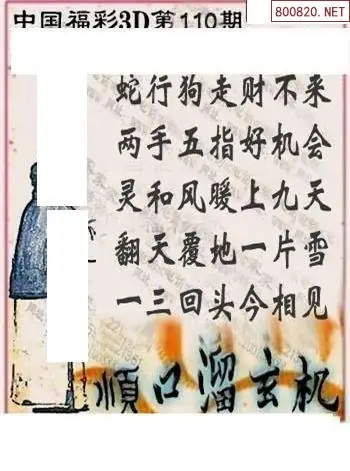 中国福彩3D第110期
800820.NET
蛇行狗走财不来
两手五指好机会
灵和风暖上九天
翻天覆地一片雪
一三回头今相见
順口溜玄机